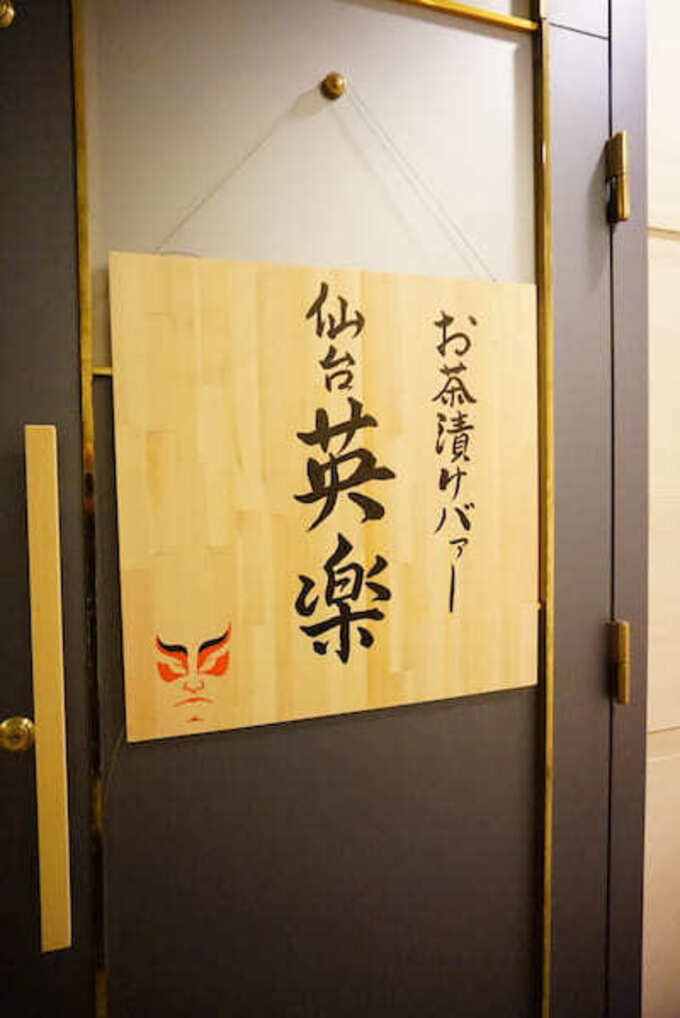 お茶漬けバァー
仙台英楽